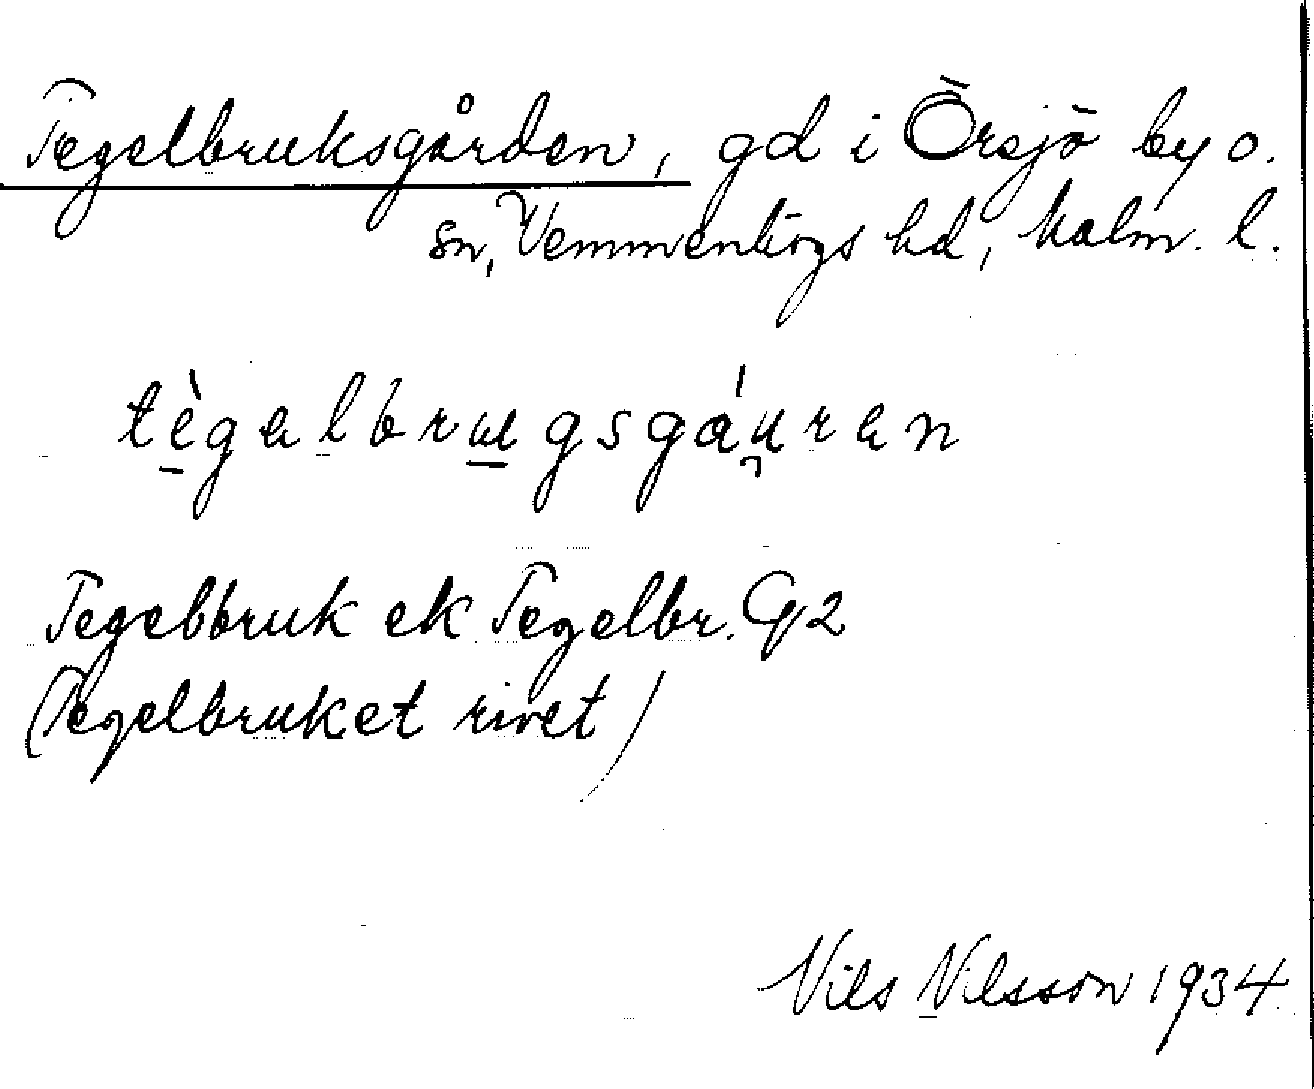 Tegelbruksgården, gd i Örsjö by o.
sn, Vemmenhögs hd, Malm. l.
tègalbrugsgáu̯ran
Tegelbruk ek Tegelbr. G 2
(Tegelbruket rivet)
Nils Nilsson 1934